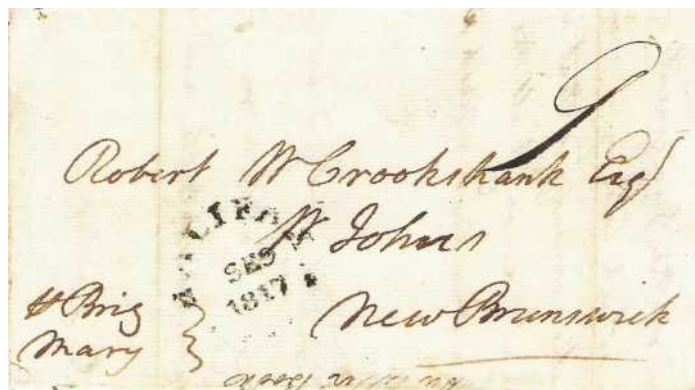 9
Robert W Crookshank Esqr
St Johns
HALIFAX
SE 9
1817
New Brunswick
Brig
Mary